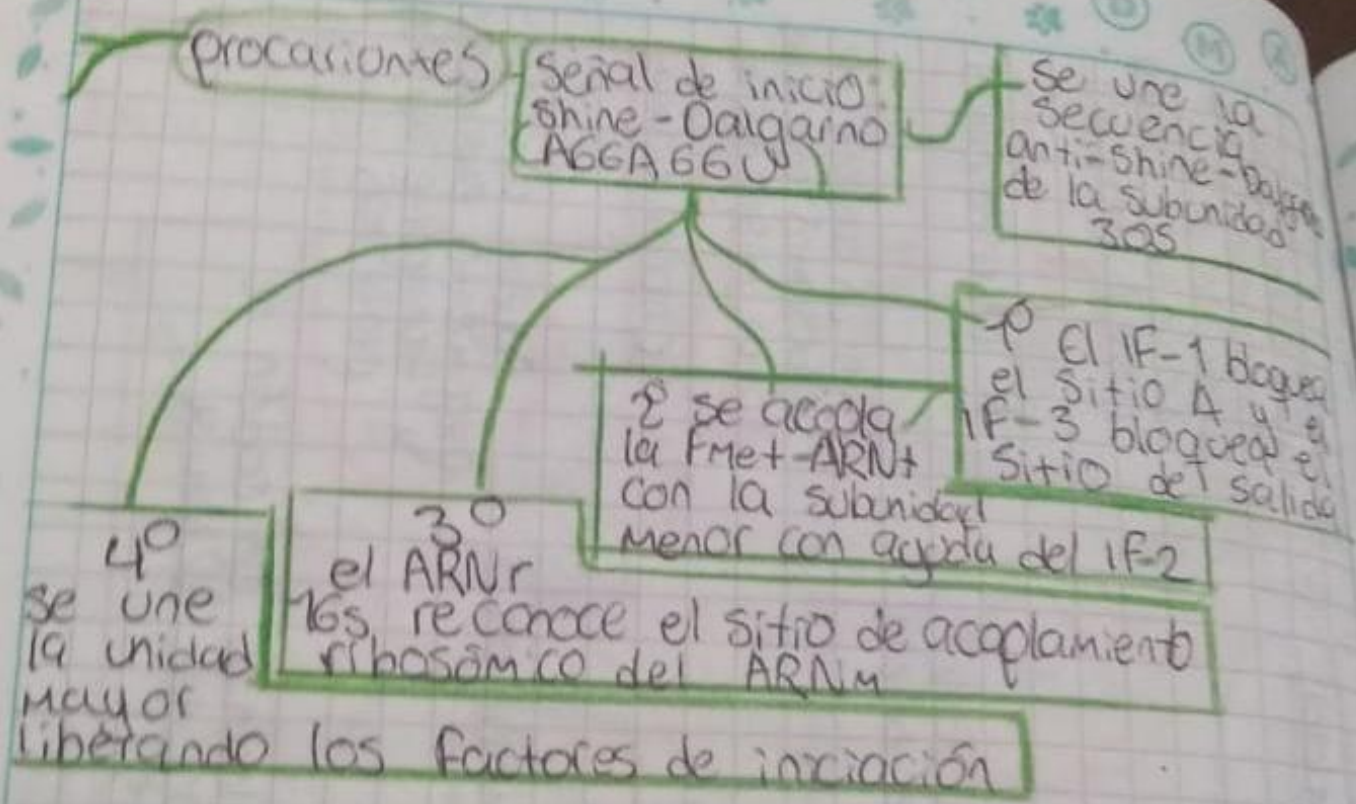 procariontes
Señal de inicio:
Shine-Dalgarno
AGGAGGU
Se une la
secuencia
anti-Shine-Dalgarno
de la subunidad
30S
1º El IF-1 boquea
el sitio A y el
IF-3 bloquea el
sitio de salida
2º se acopla
la FMet-ARNt
con la subunidad
menor con ayuda del IF-2
3º
el ARNr
16s reconoce el sitio de acoplamiento
ribosómico del ARNm
4º
se une
la unidad
mayor
liberando los factores de iniciación
M